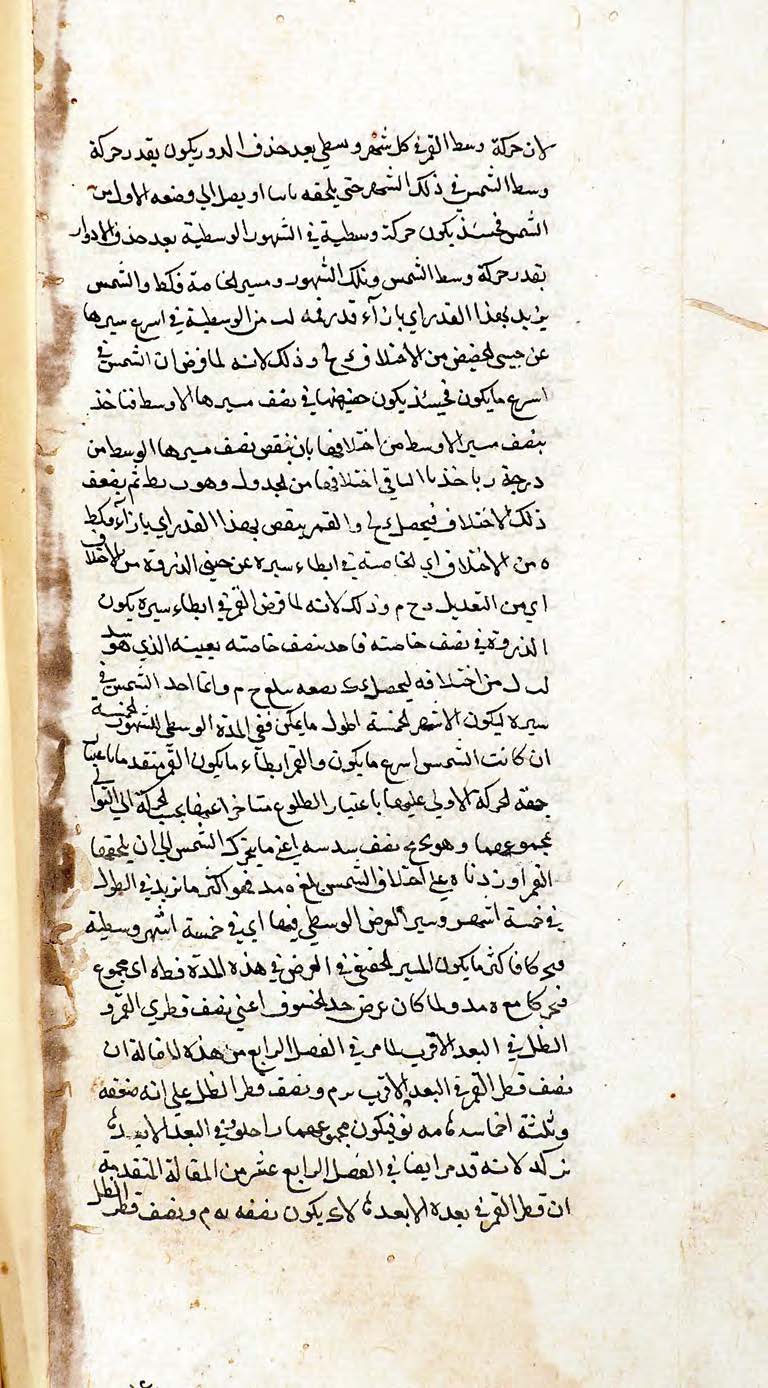 لان حركة وسط القمر في كل شهر وسطي بعد حذف الدور يكون بقدر حركة
وسط الشمس في ذلك الشهر حتى يلحقه او يصل الي وضعه الاول من
الشمس فحينئذ يكون حركة وسطية في الشهور الوسطية بعد حذف الادوار
بقدر حركة وسط الشمس وتلك الشهور ومسير الخاصة قكط والشمس
يزيد بهذا القدر اي بازآء قدر من الوسطية في اسرع سيرها
عن جنبي الحضيض من الاختلاف وذلك لانه لما فرض ان الشمس في
اسرع ما يكون فحينئذ يكون حضيضها في نصف مسيرها الاوسط فناخذ
بنصف مسير الاوسط من اختلافها بان ينقص نصف مسيرها الوسط من
درجة وياخذ بالباقي اختلافها من الجدول وهو ب يط ثم يضعف
ذلك الاختلاف فيحصل والقمر ينقص بهذا القدر اي بازآء قكط
ه من الاختلاف اي الخاصة في ابطاء سيره عن جنبي الذروة من الاختلاف
اي من التعديل ح م وذلك لانه لما فرض القمر في ابطاء سيره يكون
الذروة في نصف خاصته فاخذ بنصف خاصته بعينه الذي هو سد
لب ل من اختلافه ليحصل ضعفه مبلغ ح م وانما اخذ الشمس في
سيره ليكون الاشهر الخمسة اطول ما يمكن ففي المدة الوسطي للشهور الخمسة
ان كانت الشمس اسرع ما يكون والقمر ابطآء ما يكون القمر متقدما باعتبار
جهة الحركة الاولي عليها باعتبار الطلوع متاخرا عنها بحسب الحركة الي التوالي
بمجموعهما وهو نصف سدسه اعني ما يتحرك الشمس الي ان يلحقها
القمر اوزدناه علي اختلاف الشمس بلغ ه مد فهو اكثر ما يزيد في الطول
في خمسة اشهر وسير العرض الوسطي فيها اي في خمسة اشهر وسطية
فاكثر ما يكون المسير الحقيقي في العرض في هذه المدة قنط ه اي مجموع
مع ه مد ولما كان عرض حد الخسوف اعني نصف قطري القمر و
الظل في البعد الاقرب لما مر في الفصل الرابع من هذه المقالة ان
نصف قطر القمر في البعد الاقرب م ونصف قطر الظل علي انه ضعفه
وثلثة اخماسه مه نو فيكون مجموعهما وفي البعد الابعد
لانه قد مر ايضا في الفصل الرابع عشر من المقالة المتقدمة
ان قطر القمر في بعده الابعد لا ك يكون نصفه يه م ونصف قطر الظل